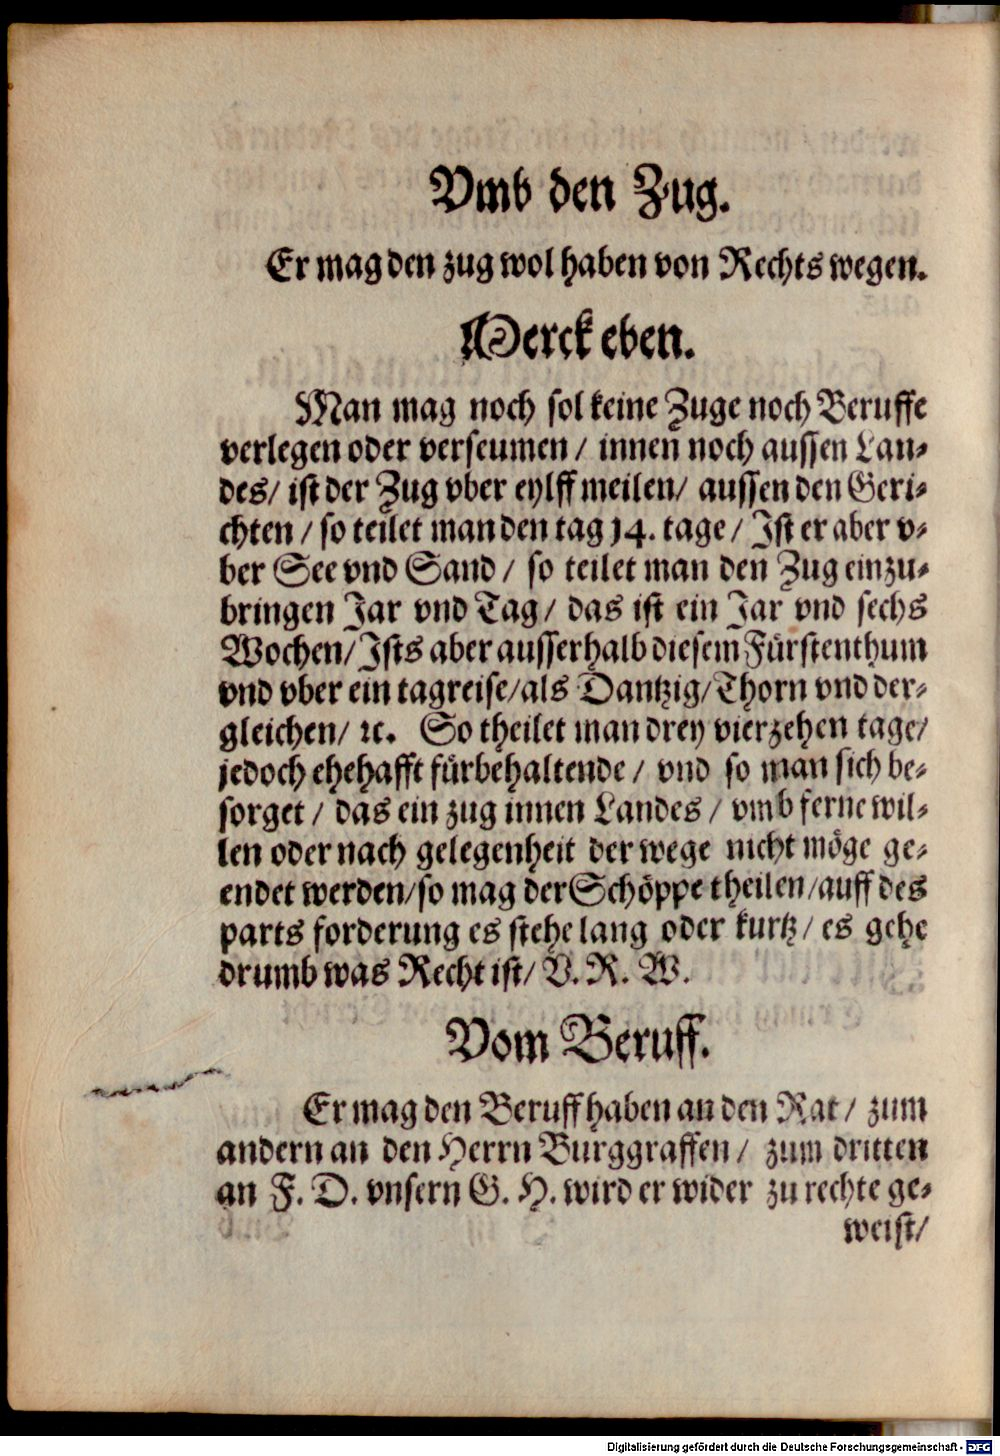 Vmb den Zug.
Er mag den zug wol haben von Rechts wegen.
Merck eben.
Man mag noch sol keine Zuge noch Beruffe
verlegen oder verseumen / innen noch aussen Lan-
des / ist der Zug vber eylff meilen / aussen den Geri-
chten / so teilet man den tag 14. tage / Ist er aber v-
ber See vnd Sand / so teilet man den Zug einzu-
bringen Jar vnd Tag / das ist ein Jar vnd sechs
Wochen / Ists aber ausserhalb diesem Fürstenthum
vnd vber ein tagreise / als Dantzig / Thorn vnd der-
gleichen / ꝛc. So theilet man drey vierzehen tage /
jedoch ehehafft fürbehaltende / vnd so man sich be-
sorget / das ein zug innen Landes / vmb ferne wil-
len oder nach gelegenheit der wege nicht möge ge-
endet werden / so mag der Schöppe theilen / auff des
parts forderung es stehe lang oder kurtz / es gehe
drumb was Recht ist / V. R. W.
Vom Beruff.
Er mag den Beruff haben an den Rat / zum
andern an den Herrn Burggraffen / zum dritten
an F. D. vnsern G. H. wird er wider zu rechte ge-
weist /
Digitalisierung gefördert durch die Deutsche Forschungsgemeinschaft - DFG